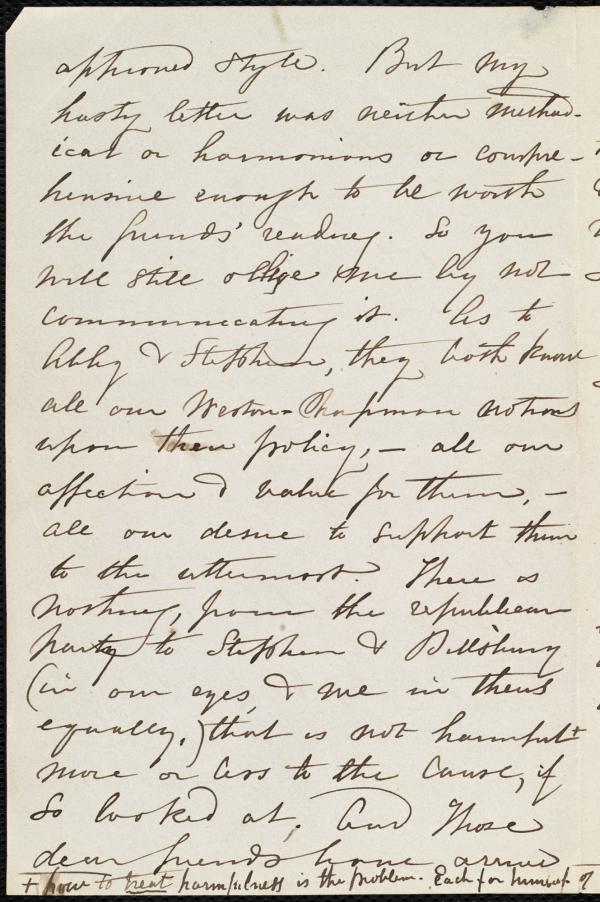 approved style. But my
hasty letter was neither method-
ical or harmonious or compre-
hensive enough to be worth
the friends' reading. So you
will still oblige me by not
communicating it. As to
Abby & Stephen, they both know
all our Weston-Chapman notions
upon their policy, – all our
affection & value for them, –
all our desire to support them
to the uttermost. There is
nothing, from the republican
party to Stephen & Pillsbury
(in our eyes, & we in theirs
equally,) that is not harmful+
more or less to the Cause, if
so looked at. And those
dear friends have
+ how to treat harmfulness is the problem. Each for himself